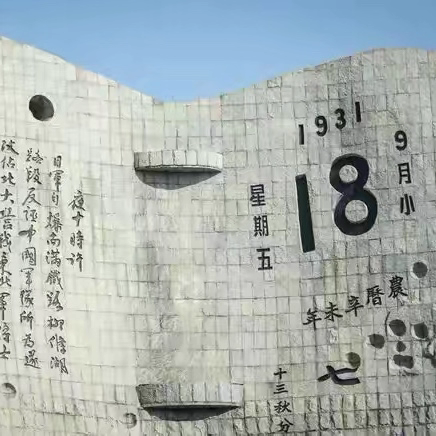 1931
9月小
18
星期五
農曆辛未年
七
十三秋分
夜十時許
日軍自爆南滿鐵路柳條湖
路段反誣中國軍隊所為遂
攻佔北大營我東北軍將士